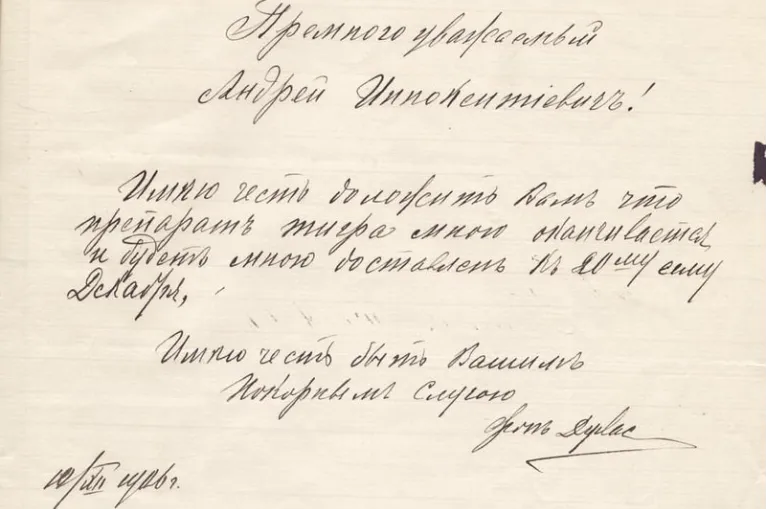 Премного уважаемый
Андрей Иннокентіевичъ!
Имѣю честь доложить Вамъ что
препаратъ тигра мною оканчивается
и будетъ мною доставленъ къ 20му сему
Декабря,
Имѣю честь быть Вашимъ
покорнымъ слугою
фонъ
10/XII 1906 г.